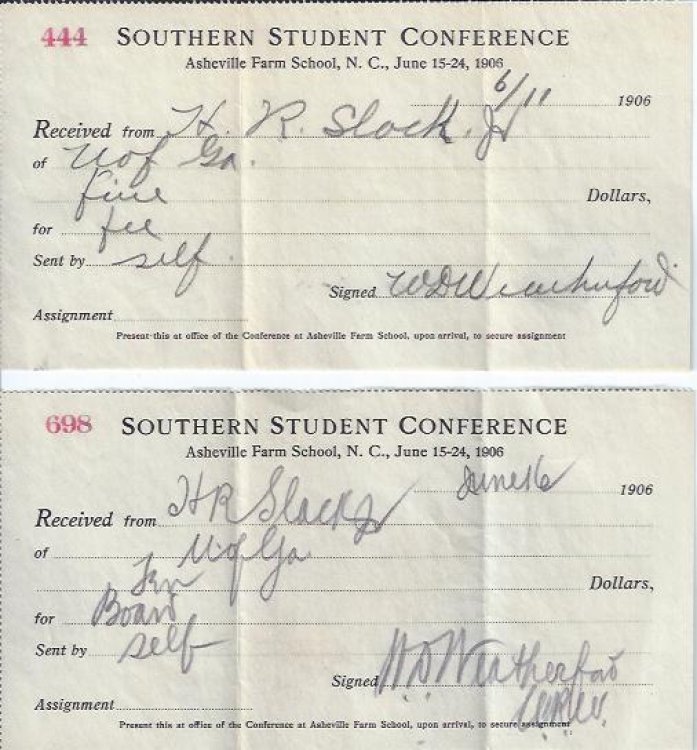 444 SOUTHERN STUDENT CONFERENCE
Asheville Farm School, N. C., June 15-24, 1906
6/11 1906
Received from H. R. Slack. Jr
of U of Ga.
five Dollars,
for fee
Sent by self.
Signed WDWeatherford
Assignment
Present this at office of the Conference at Asheville Farm School, upon arrival, to secure assignment
698 SOUTHERN STUDENT CONFERENCE
Asheville Farm School, N. C., June 15-24, 1906
June 16 1906
Received from H R Slack Jr
of U of Ga.
Ten Dollars,
for Board
Sent by self
Signed W D Weatherford
Assignment
Present this at office of the Conference at Asheville Farm School, upon arrival, to secure assignment